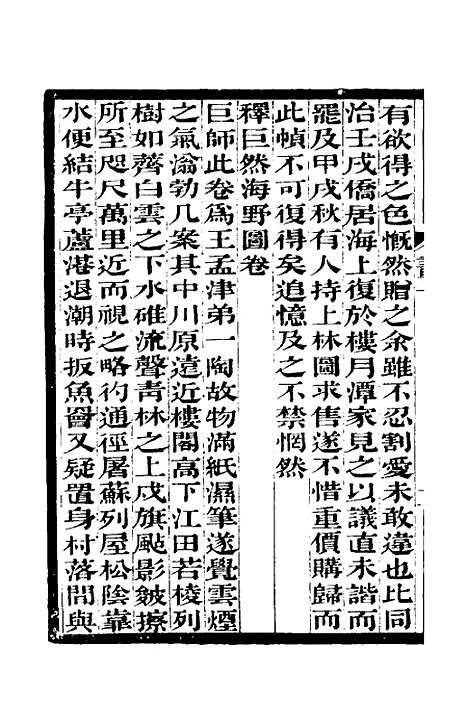 有欲得之色慨然贈之余雖不忍割愛未敢違也比同
治壬戌僑居海上復於樓月潭家見之以議直未諧而
罷及甲戌秋有人持上林圖求售遂不惜重價購歸而
此幀不可復得矣追憶及之不禁惘然
釋巨然海野圖卷
巨師此卷爲王孟津弟一陶故物滿紙濕筆遂覺雲煙
之氣滃勃几案其中川原遠近樓閣高下江田若棱列
樹如薺白雲之下水碓流聲青林之上戍旗颭影皴擦
所至咫尺萬里近而視之略彴通徑屠蘇列屋松陰靠
水便結牛亭蘆港退潮時扳魚罾又疑置身村落間與